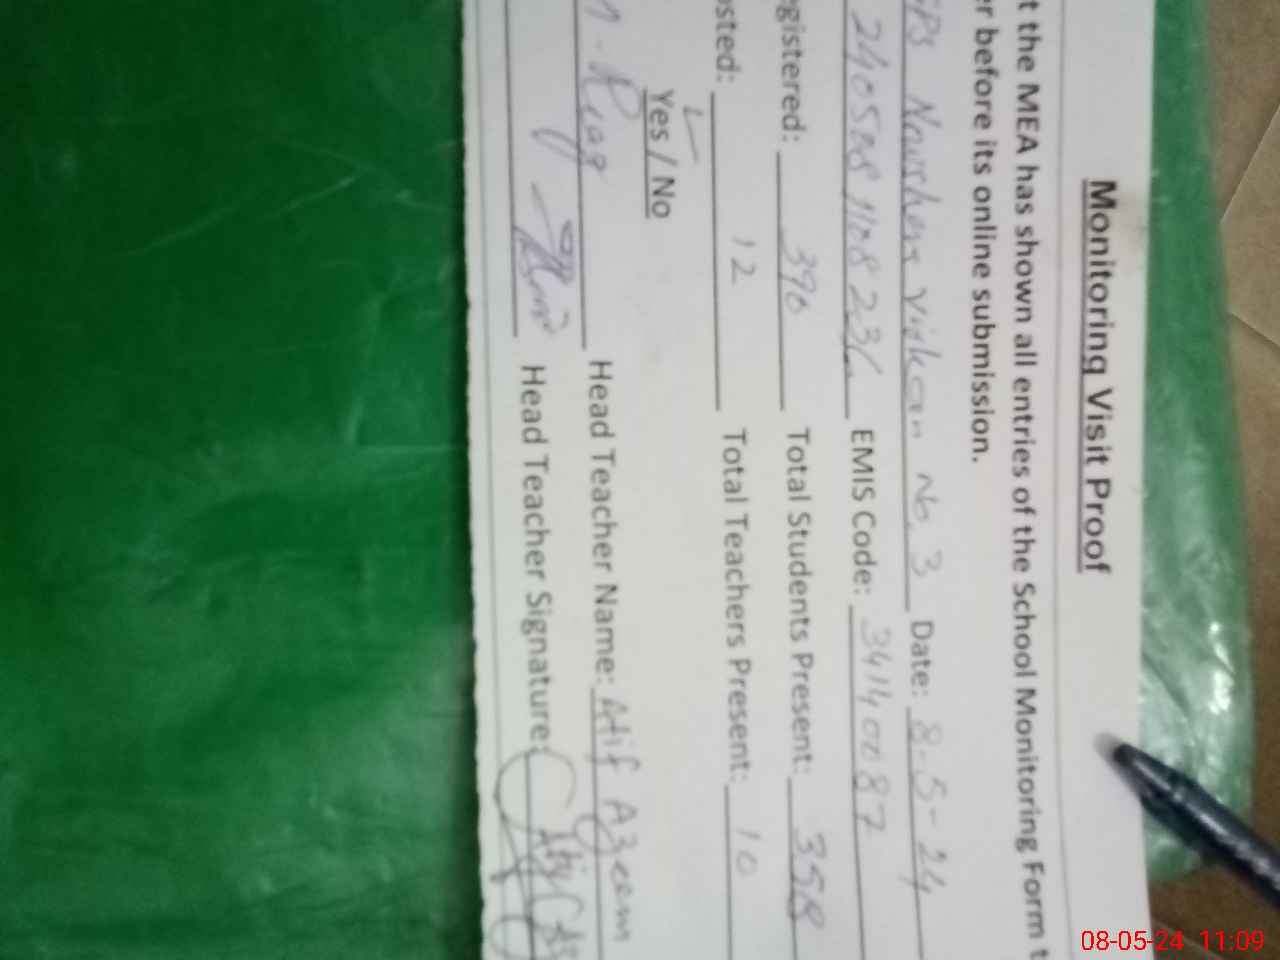 Monitoring Visit Proof
t the MEA has shown all entries of the School Monitoring Form t
er before its online submission.
GPS Nowshera Virkan No. 3 Date: 8-5-24
EMIS Code: 34140087
gistered: 390 Total Students Present: 358
sted: 12 Total Teachers Present: 10
Yes / No
Head Teacher Name: Atif Azeem
Head Teacher Signature:
08-05-24 11:09